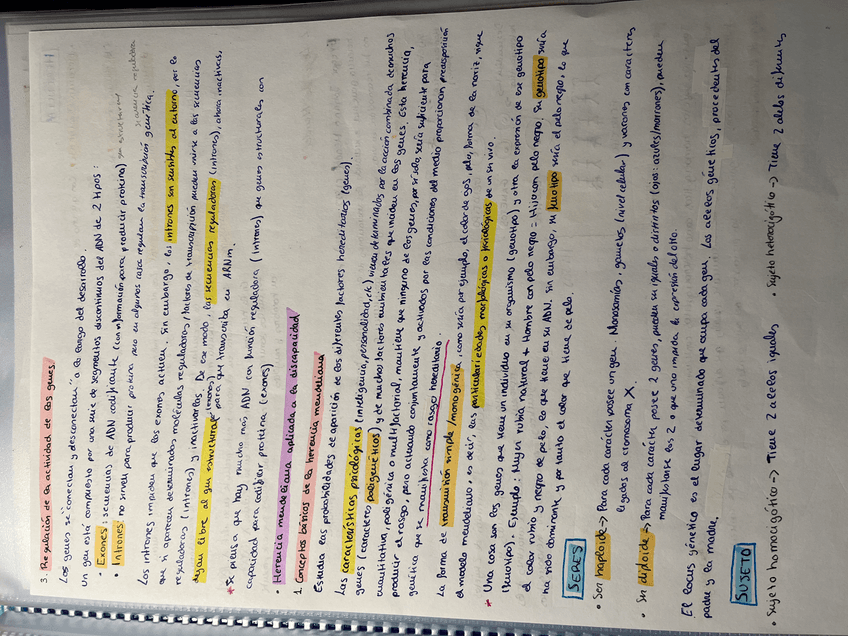 3. Regulación de la actividad de los genes.
Los genes se "conectan y desconectan" a lo largo del desarrollo
Un gen está compuesto por una serie de segmentos discontinuos del ADN de 2 tipos:
• Exones: secuencias de ADN codificante (con información para producir proteína) gen estructural
• Intrones: no sirven para producir proteína pero en algunos casos regulan la transcripción genética. secuencia reguladora
Los intrones impiden que los exones actúen. Sin embargo los intrones son sensibles al entorno, por lo
que si aparecen determinadas moléculas reguladoras/factores de transcripción pueden unirse a las secuencias
reguladoras (intrones) y inactivarlas. De ese modo, las secuencias reguladoras (intrones), ahora inactivas,
dejan libre al gen estructural (exones) para que transcriba en ARNm.
* Se piensa que hay mucho más ADN con función reguladora (intrones) que genes estructurales con
capacidad para codificar proteína (exones)
• Herencia mendeliana aplicada a la discapacidad
1. Conceptos básicos de la herencia mendeliana
Estudia las probabilidades de aparición de los diferentes factores hereditarios (genes).
Las características psicológicas (inteligencia, personalidad, etc) vienen determinadas por la acción combinada de muchos
genes (caracteres poligenéticos) y de muchos factores ambientales que inciden en los genes. Esta herencia,
cuantitativa, poligénica o multifactorial, mantiene que ninguno de los genes, por sí solo, sería suficiente para
producir el rasgo, pero actuando conjuntamente y activados por las condiciones del medio proporcionan predisposición
genética que se manifiesta como rasgo hereditario.
La forma de transmisión simple/monogénica, como sería por ejemplo, el color de ojos, pelo, forma de la nariz, sigue
el modelo mendeliano, es decir, las particularidades morfológicas o fisiológicas de un ser vivo.
* Una cosa son los genes que tiene un individuo en su organismo (genotipo) y otra la expresión de ese genotipo
(fenotipo). Ejemplo: Mujer rubia natural + Hombre con pelo negro = Hijo con pelo negro. Su genotipo sería
el color rubio y negro de pelo, lo que tiene en su ADN. Sin embargo, su fenotipo sería el pelo negro, lo que
ha sido dominante, y por tanto el color que tiene de pelo.
SERES
• Son haploide -> Para cada carácter posee un gen. Monosomías, gametos (nivel celular) y varones con caracteres
ligados al cromosoma X.
• Son diploide -> Para cada carácter posee 2 genes, pueden ser iguales o distintos (ojos: azules/marrones), pueden
manifestarse los 2 o que uno impida la expresión del otro.
El locus genético es el lugar determinado que ocupa cada gen. Los alelos genéticos, procedentes del
padre y la madre.
SUJETO
• Sujeto homocigótico -> Tiene 2 alelos iguales • Sujeto heterocigótico -> Tiene 2 alelos diferentes